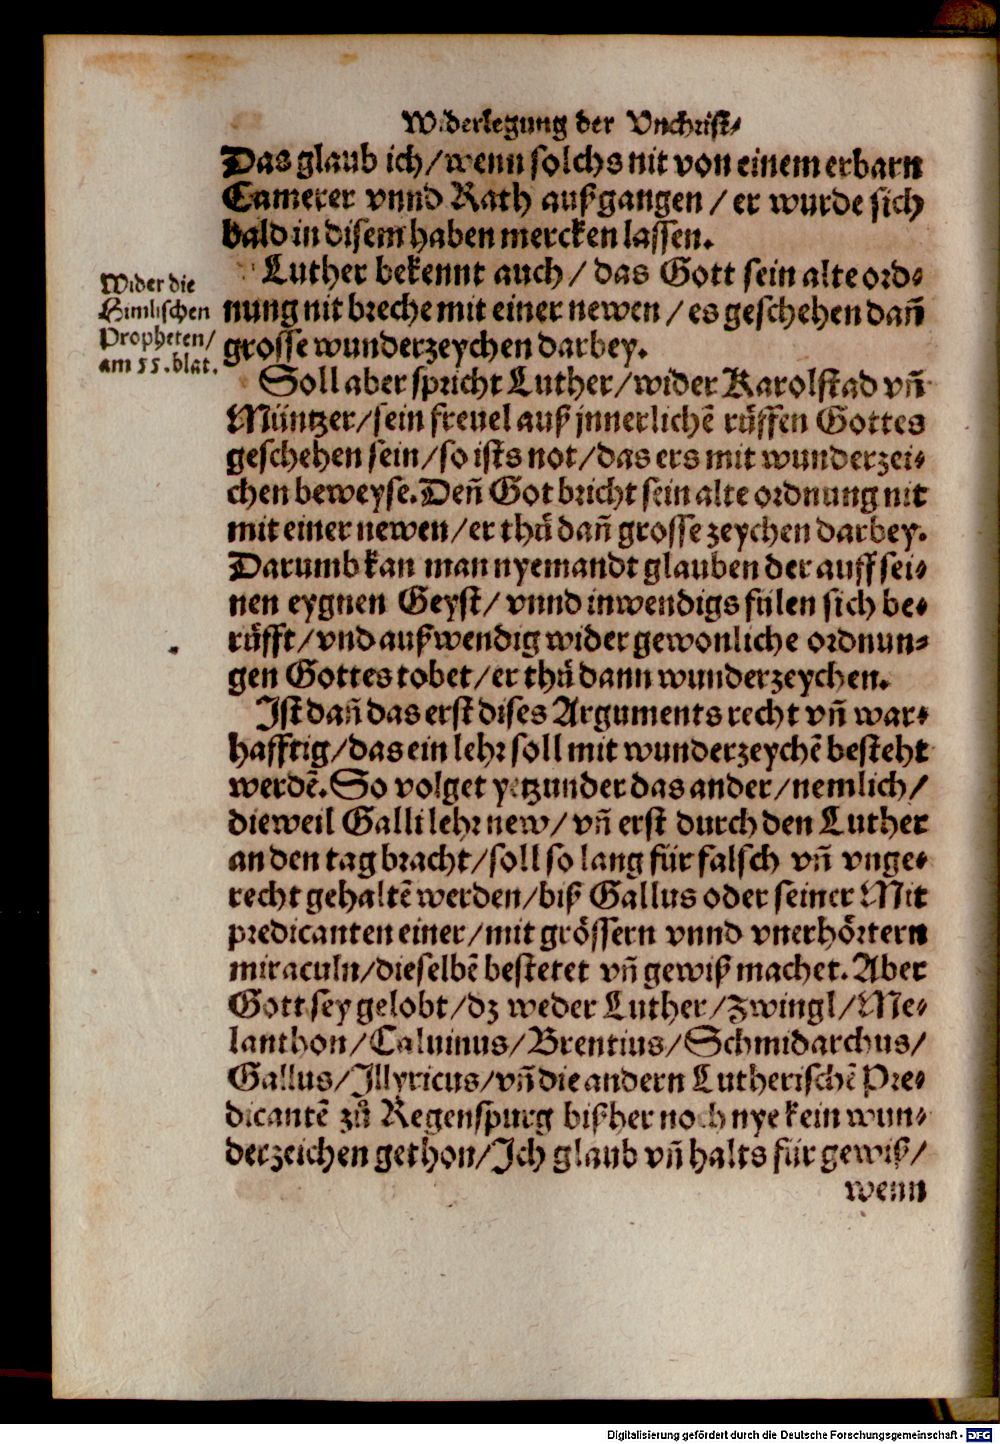 Widerlegung der Vnchrist⸗
Das glaub ich/wenn solchs nit von einem erbarn
Camerer vnnd Rath außgangen/ er wurde sich
bald in disem haben mercken lassen.
Luther bekennt auch/ das Gott sein alte ord⸗
nung nit breche mit einer newen/ es geschehen dañ
grosse wunderzeychen darbey.
Wider die
Himlischen
Propheten/
am 55.blat.
Soll aber spricht Luther/wider Karolstad vñ
Müntzer/sein freuel auß jnnerlichẽ rüffen Gottes
geschehen sein/so ists not/das ers mit wunderzei⸗
chen beweyse. Deñ Got bricht sein alte ordnung nit
mit einer newen/er thů dañ grosse zeychen darbey.
Darumb kan man nyemandt glauben der auff sei⸗
nen eygnen Geyst/ vnnd inwendigs fülen sich be⸗
růfft/vnd außwendig wider gewonliche ordnun⸗
gen Gottes tobet/er thů dann wunderzeychen.
Ist dañ das erst dises Arguments recht vñ war⸗
hafftig/das ein lehr soll mit wunderzeychẽ besteht
werdẽ. So volget yetzunder das ander/nemlich/
dieweil Galli lehr new/ vñ erst durch den Luther
an den tag bracht/soll so lang für falsch vñ vnge⸗
recht gehaltẽ werden/biß Gallus oder seiner Mit
predicanten einer/mit grössern vnnd vnerhörtern
miraculn/dieselbẽ bestetet vñ gewiß machet. Aber
Gott sey gelobt/dz weder Luther/Zwingl/Me⸗
lanthon/Caluinus/Brentius/Schmidarchus/
Gallus/Illyricus/vñ die andern Lutherischẽ Pre⸗
dicantẽ zů Regenspurg bißher noch nye kein wun⸗
derzeichen gethon/Ich glaub vñ halts für gewiß/
wenn
Digitalisierung gefördert durch die Deutsche Forschungsgemeinschaft - DFG